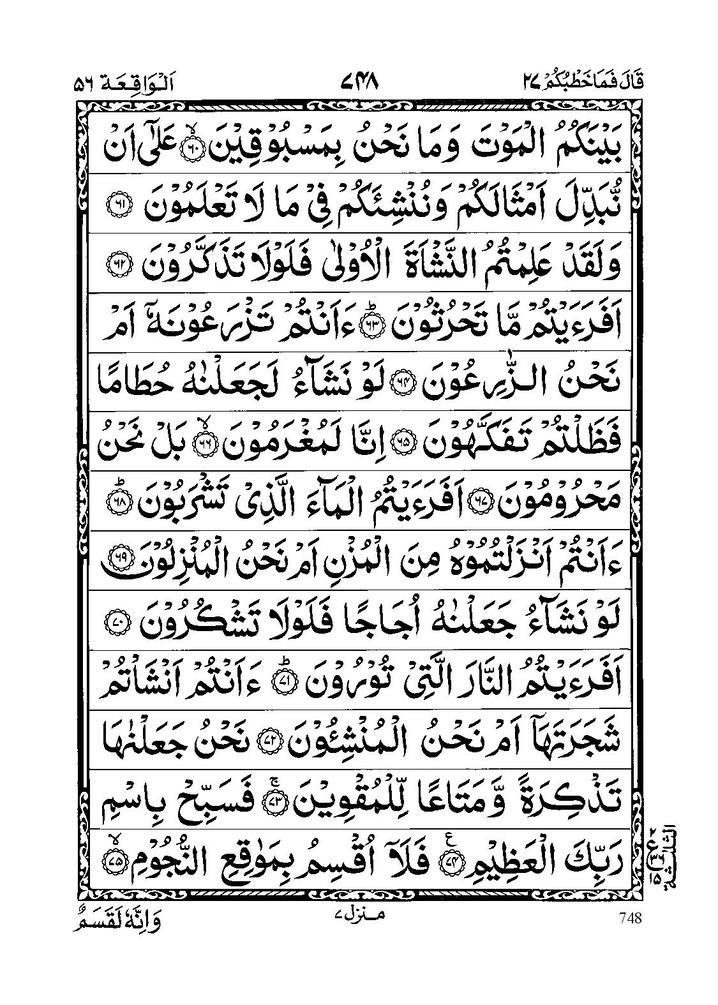 قَالَ فَمَا خَطْبُكُمْ ٢٧ ٧٤٨ اَلْوَاقِعَة ٥٦
بَيْنَكُمُ الْمَوْتَ وَمَا نَحْنُ بِمَسْبُوْقِيْنَ ﴿۶۰﴾ۙ عَلٰٓى اَنْ
نُّبَدِّلَ اَمْثَالَكُمْ وَنُنْشِئَكُمْ فِىْ مَا لَا تَعْلَمُوْنَ ﴿۶۱﴾
وَلَقَدْ عَلِمْتُمُ النَّشْاَةَ الْاُوْلٰى فَلَوْلَا تَذَكَّرُوْنَ ﴿۶۲﴾
اَفَرَءَيْتُمْ مَّا تَحْرُثُوْنَ ﴿۶۳﴾ؕ ءَاَنْتُمْ تَزْرَعُوْنَهٗۤ اَمْ
نَحْنُ الزّٰرِعُوْنَ ﴿۶۴﴾ لَوْ نَشَآءُ لَجَعَلْنٰهُ حُطَامًا
فَظَلْتُمْ تَفَكَّهُوْنَ ﴿۶۵﴾ اِنَّا لَمُغْرَمُوْنَ ﴿۶۶﴾ۙ بَلْ نَحْنُ
مَحْرُوْمُوْنَ ﴿۶۷﴾ اَفَرَءَيْتُمُ الْمَآءَ الَّذِىْ تَشْرَبُوْنَ ﴿۶۸﴾ؕ
ءَاَنْتُمْ اَنْزَلْتُمُوْهُ مِنَ الْمُزْنِ اَمْ نَحْنُ الْمُنْزِلُوْنَ ﴿۶۹﴾
لَوْ نَشَآءُ جَعَلْنٰهُ اُجَاجًا فَلَوْلَا تَشْكُرُوْنَ ﴿۷۰﴾
اَفَرَءَيْتُمُ النَّارَ الَّتِىْ تُوْرُوْنَ ﴿۷۱﴾ؕ ءَاَنْتُمْ اَنْشَاْتُمْ
شَجَرَتَهَاۤ اَمْ نَحْنُ الْمُنْشِئُوْنَ ﴿۷۲﴾ نَحْنُ جَعَلْنٰهَا
تَذْكِرَةً وَّمَتَاعًا لِّلْمُقْوِيْنَ ﴿۷۳﴾ۚ فَسَبِّحْ بِاسْمِ
رَبِّكَ الْعَظِيْمِ ﴿۷۴﴾ع فَلَاۤ اُقْسِمُ بِمَوٰقِعِ النُّجُوْمِ ﴿۷۵﴾ۙ
الثلٰثة
وَاِنَّهٗ لَقَسَمٌ منزل ٧ 748